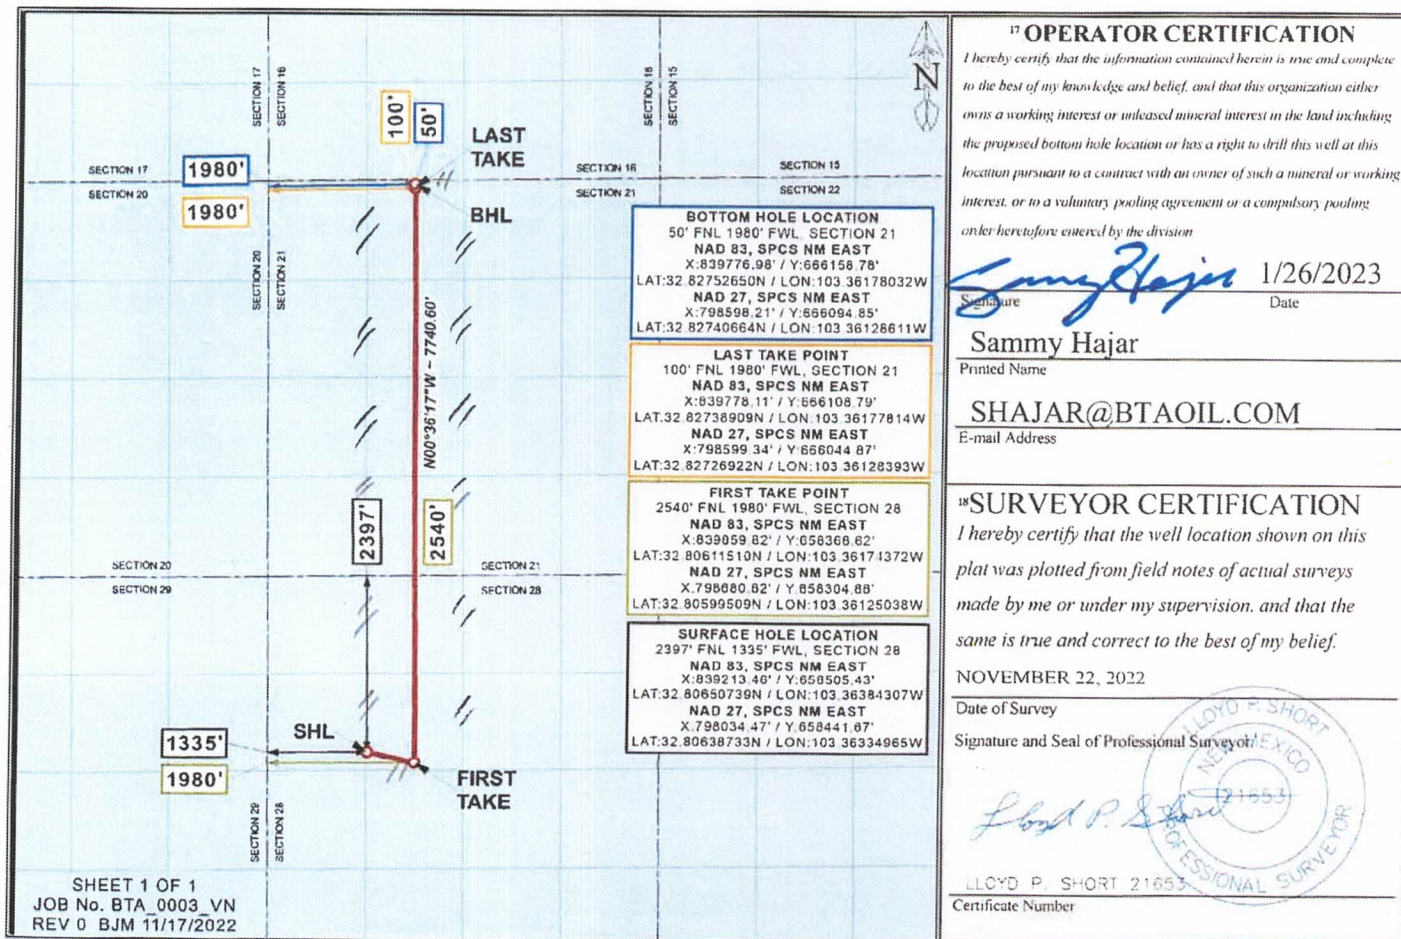 SECTION 17
SECTION 16
SECTION 16
SECTION 15
N
100'
50'
LAST
TAKE
SECTION 17
SECTION 20
1980'
1980'
SECTION 16
SECTION 21
SECTION 15
SECTION 22
BHL
SECTION 20
SECTION 21
N00°36'17"W ~ 7740.60'
2397'
2540'
SECTION 20
SECTION 29
SECTION 21
SECTION 28
SHL
1335'
1980'
FIRST
TAKE
SECTION 29
SECTION 28
SHEET 1 OF 1
JOB No. BTA_0003_VN
REV 0 BJM 11/17/2022
BOTTOM HOLE LOCATION
50' FNL 1980' FWL, SECTION 21
NAD 83, SPCS NM EAST
X:839776.98' / Y:666158.78'
LAT:32.82752650N / LON:103.36178032W
NAD 27, SPCS NM EAST
X:798598.21' / Y:666094.85'
LAT:32.82740664N / LON:103.36128611W
LAST TAKE POINT
100' FNL 1980' FWL, SECTION 21
NAD 83, SPCS NM EAST
X:839778.11' / Y:666108.79'
LAT:32.82738909N / LON:103.36177814W
NAD 27, SPCS NM EAST
X:798599.34' / Y:666044.87'
LAT:32.82726922N / LON:103.36128393W
FIRST TAKE POINT
2540' FNL 1980' FWL, SECTION 28
NAD 83, SPCS NM EAST
X:839859.82' / Y:658368.62'
LAT:32.80611510N / LON:103.36174372W
NAD 27, SPCS NM EAST
X:798680.82' / Y:658304.88'
LAT:32.80599509N / LON:103.36125038W
SURFACE HOLE LOCATION
2397' FNL 1335' FWL, SECTION 28
NAD 83, SPCS NM EAST
X:839213.46' / Y:658505.43'
LAT:32.80650739N / LON:103.36384307W
NAD 27, SPCS NM EAST
X:798034.47' / Y:658441.67'
LAT:32.80638733N / LON:103.36334965W
17 OPERATOR CERTIFICATION
I hereby certify that the information contained herein is true and complete
to the best of my knowledge and belief, and that this organization either
owns a working interest or unleased mineral interest in the land including
the proposed bottom hole location or has a right to drill this well at this
location pursuant to a contract with an owner of such a mineral or working
interest, or to a voluntary pooling agreement or a compulsory pooling
order heretofore entered by the division
Sammy Hajar 1/26/2023
Signature Date
Sammy Hajar
Printed Name
SHAJAR@BTAOIL.COM
E-mail Address
18 SURVEYOR CERTIFICATION
I hereby certify that the well location shown on this
plat was plotted from field notes of actual surveys
made by me or under my supervision, and that the
same is true and correct to the best of my belief.
NOVEMBER 22, 2022
Date of Survey
Signature and Seal of Professional Surveyor
LLOYD P. SHORT
NEW MEXICO
21653
PROFESSIONAL SURVEYOR
Lloyd P. Short
LLOYD P. SHORT 21653
Certificate Number